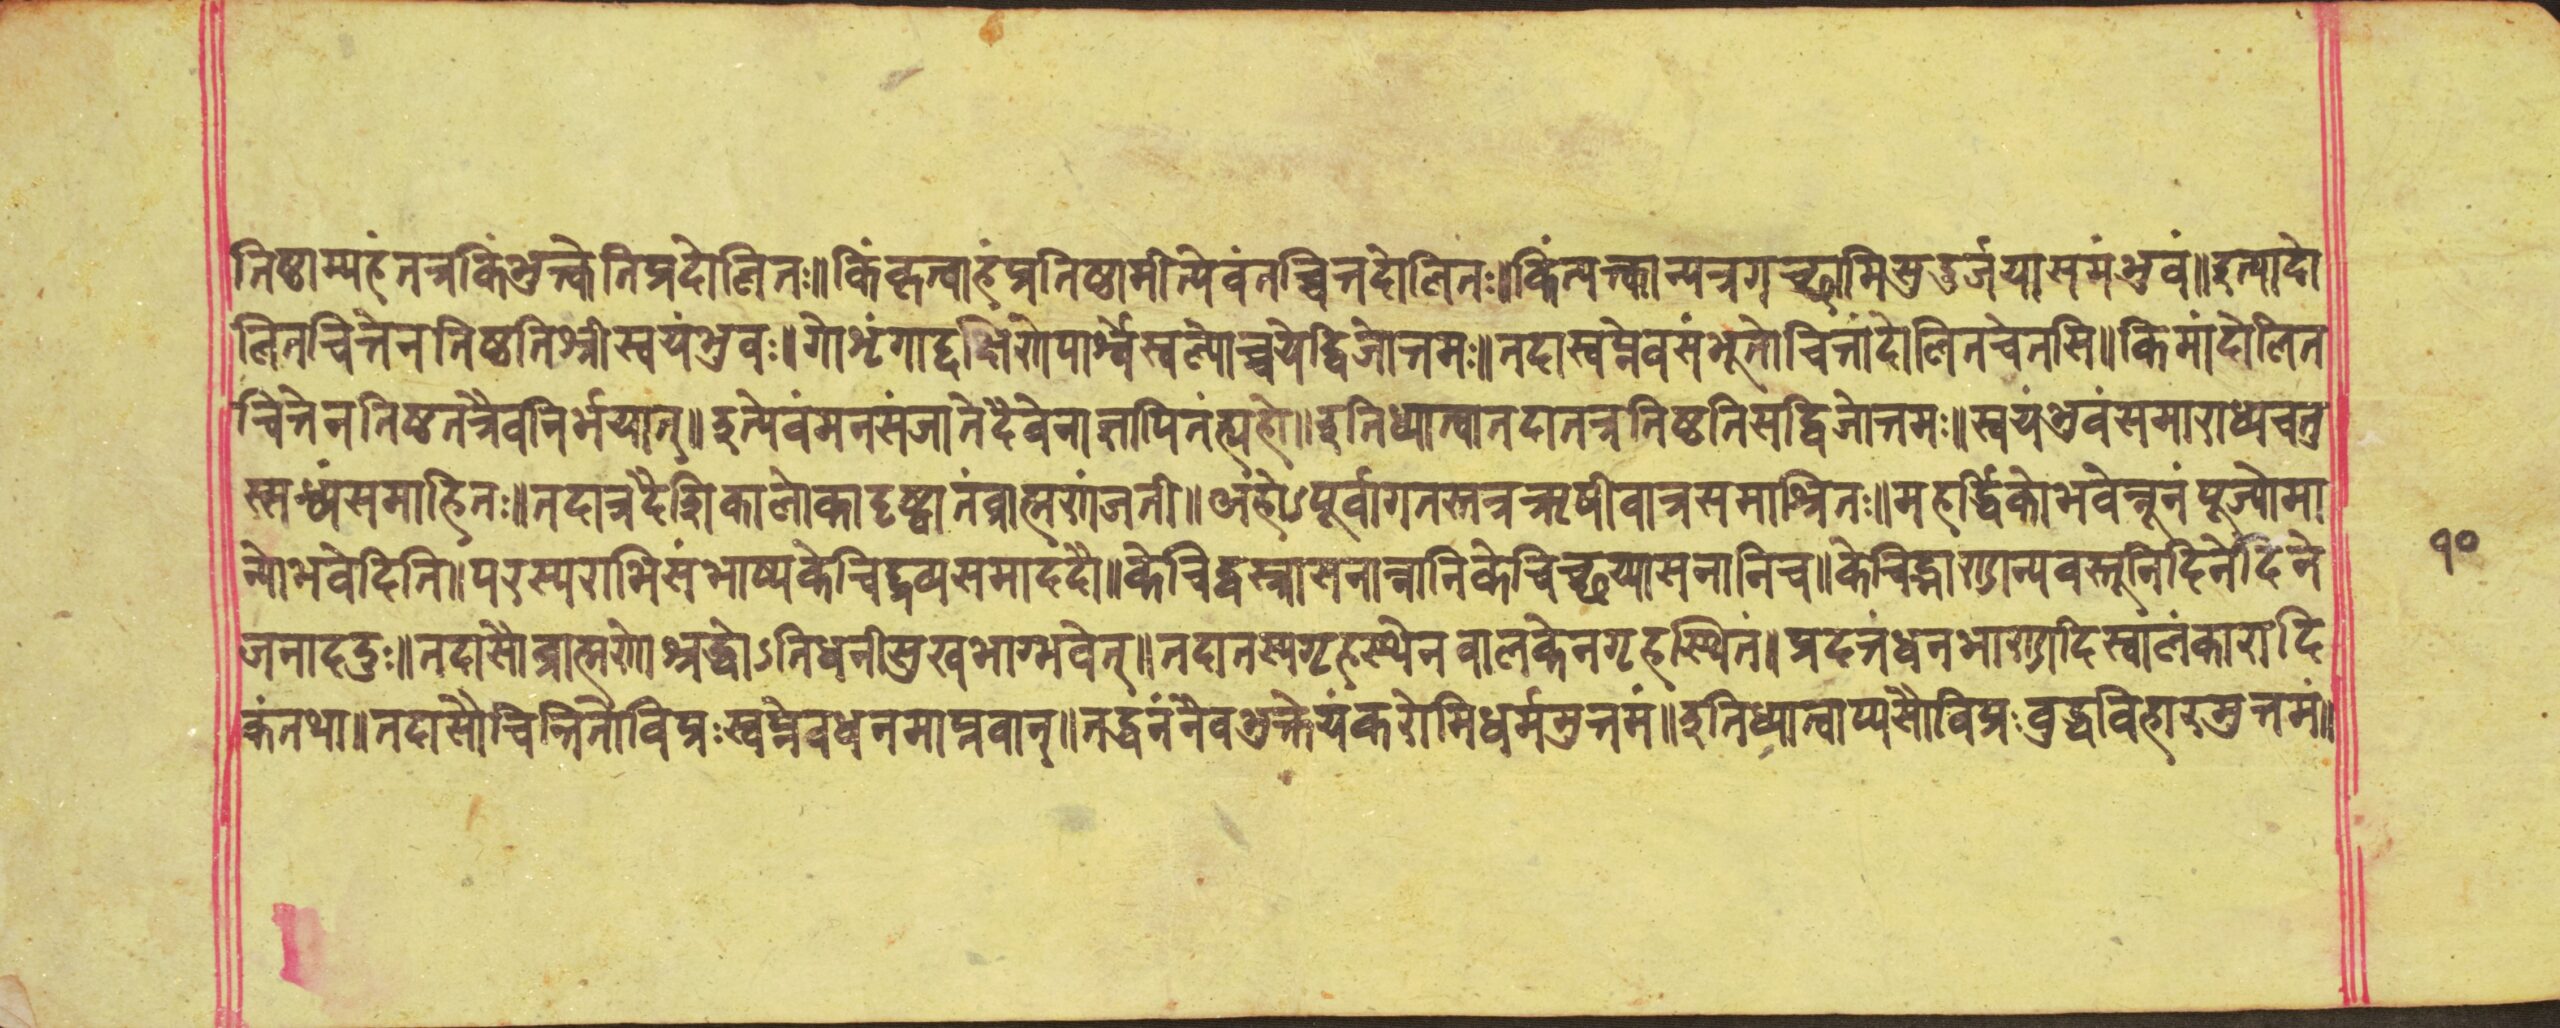 तिष्ठाम्यहं तत्र किं भुक्त्वेति प्रदोलितः॥ किं कृत्वाहं प्रतिष्ठामीत्येवं तच्चित्तदोलितः॥ किं त्यक्त्वान्यत्र गच्छामि सुदुर्जयासमं भुवं॥ इत्यादो
लितचित्तेन तिष्ठति श्रीस्वयंभुवः॥ गोशृंगाद्दक्षिणे पार्श्वे स्वल्पोच्चये द्विजोत्तमः॥ तदा स्वप्नेव संभूतो चित्तांदोलितचेतसि॥ किमांदोलित
चित्तेन तिष्ठ तत्रैव निर्भयात्॥ इत्येवं मनसं जाते दैवेनाज्ञापितं त्यहो॥ इति ध्यात्वा तदा तत्र तिष्ठति स द्विजोत्तमः॥ स्वयंभुवं समाराध्य चतु
स्सन्ध्यं समाहितः॥ तदात्र दैशिका लोका दृष्ट्वा तं ब्राह्मणं जती॥ अहोऽपूर्वागतस्तत्र ऋषीवात्र समाश्रितः॥ महर्द्धिको भवेन्नूनं पूज्यो मा
न्यो भवेदिति॥ परस्पराभिसंभाष्य केचिद्द्रव्य समाददौ॥ केचिद्वस्त्रासनान्नानि केचिच्छयासनानि च॥ केचिद्भाण्डान्यवस्तूनि दिने दिने
जना ददुः॥ तदासौ ब्राह्मणो श्रद्धोऽतिधनी सुखभाग्भवेत्॥ तदा तस्य गृहस्थेन बालकेन गृहस्थितं। प्रदत्तं धनभाण्डादि स्वालंकारादि
कं तथा॥ तदासौ चिन्तितौ विप्रः स्वप्नैव धनमाप्नवान्॥ तद्धनं नैव भुक्तेयं करोमि धर्ममुत्तमं॥ इति ध्यात्वाप्यसौ विप्रः बुद्धविहारमुत्तमं॥
१०